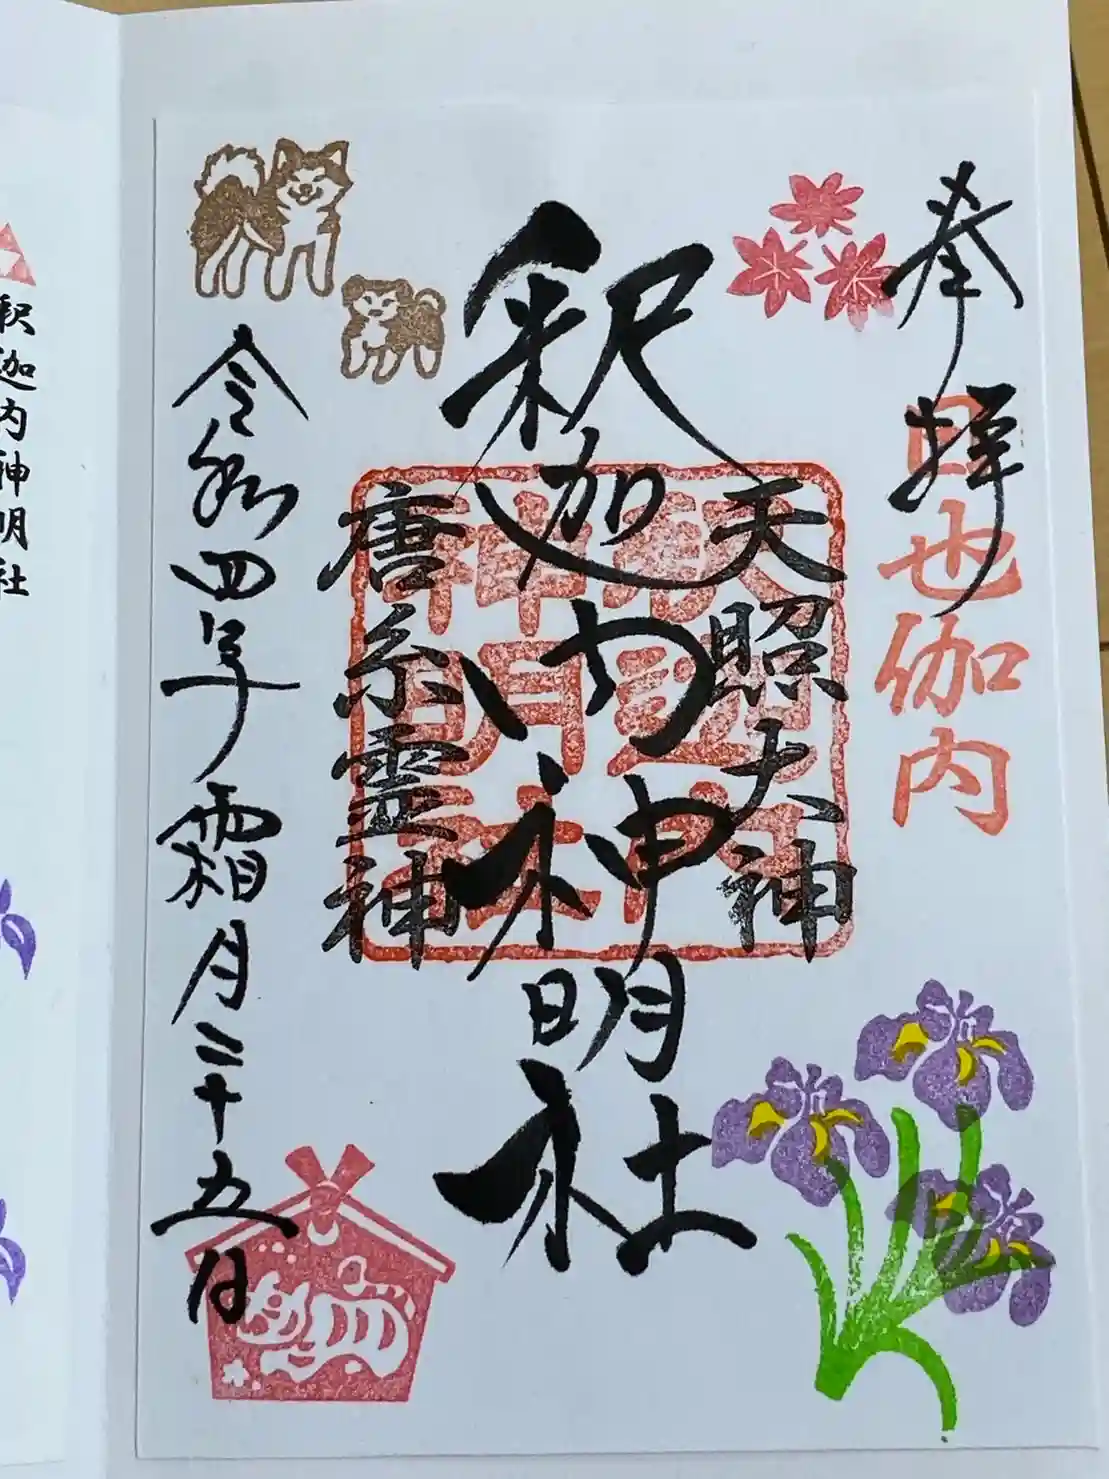 奉拝
日也伽内
天照大神
釈迦内神明社
釈迦内神明社
唐糸霊神
令和四年霜月二十五日
釈迦内神明社